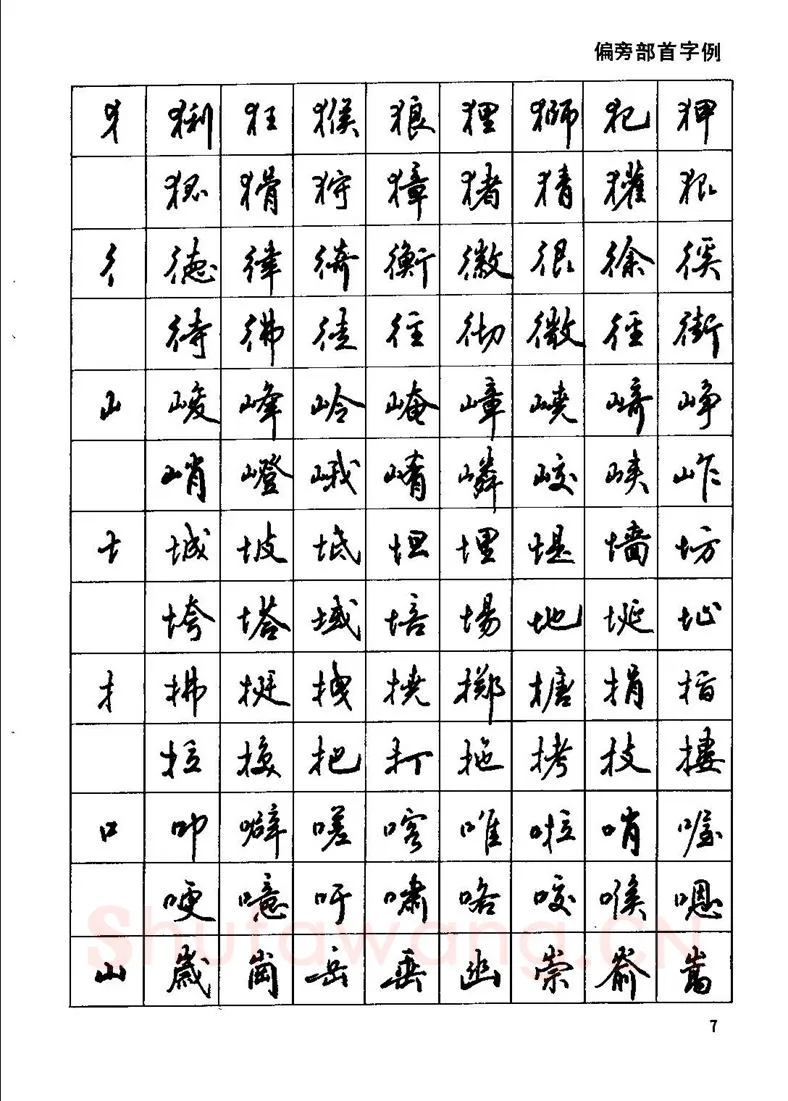 偏旁部首字例
犭 猁 狂 猴 狼 狸 獅 犯 狎
猾 狩 獐 猪 猜 獾 狠
彳 德 律 徛 衡 徽 很 徐 徯
待 彿 徒 往 彻 微 径 街
山 峻 峰 岭 崦 嶂 嶢 崎 峥
峭 嶝 峨 崤 嶙 峧 峡 岞
土 城 坡 坻 坦 埋 堤 墙 坊
垮 塔 域 培 場 地 埏 址
扌 拂 挺 拽 撓 掷 搪 捐 指
拉 换 把 打 拖 拷 技 搂
口 叩 噼 嗟 喀 唯 啦 哨 喔
哽 噫 吁 嘯 咯 咬 喉 嗯
山 崴 崗 岳 幽 崇 嵛 嵩
Shufawang.CN
7